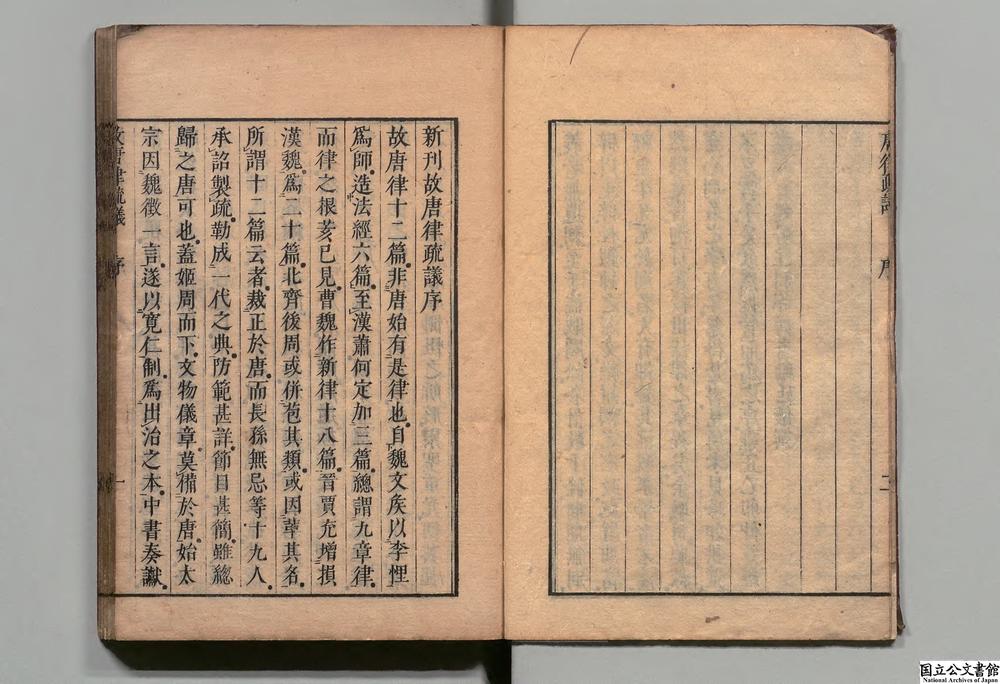 唐律疏議
序
二
新刊故唐律疏議序
故唐律十二篇。非唐始有是律也。自魏文矦以李悝
爲師。造法經六篇。至漢蕭何定加三篇。總謂九章律。
而律之根荄已見。曹魏作新律十八篇。晉賈充增損
漢魏。爲二十篇。北齊後周或併苞其類。或因革其名。
所謂十二篇云者。裁正於唐。而長孫無忌等十九人。
承詔製疏。勒成一代之典。防範甚詳。節目甚簡。雖總
歸之唐可也。蓋姬周而下。文物儀章。莫備於唐。始太
宗因魏徵一言。遂以寬仁制。爲出治之本。中書奏讞。
故唐律疏議
序
一
国立公文書館
National Archives of Japan